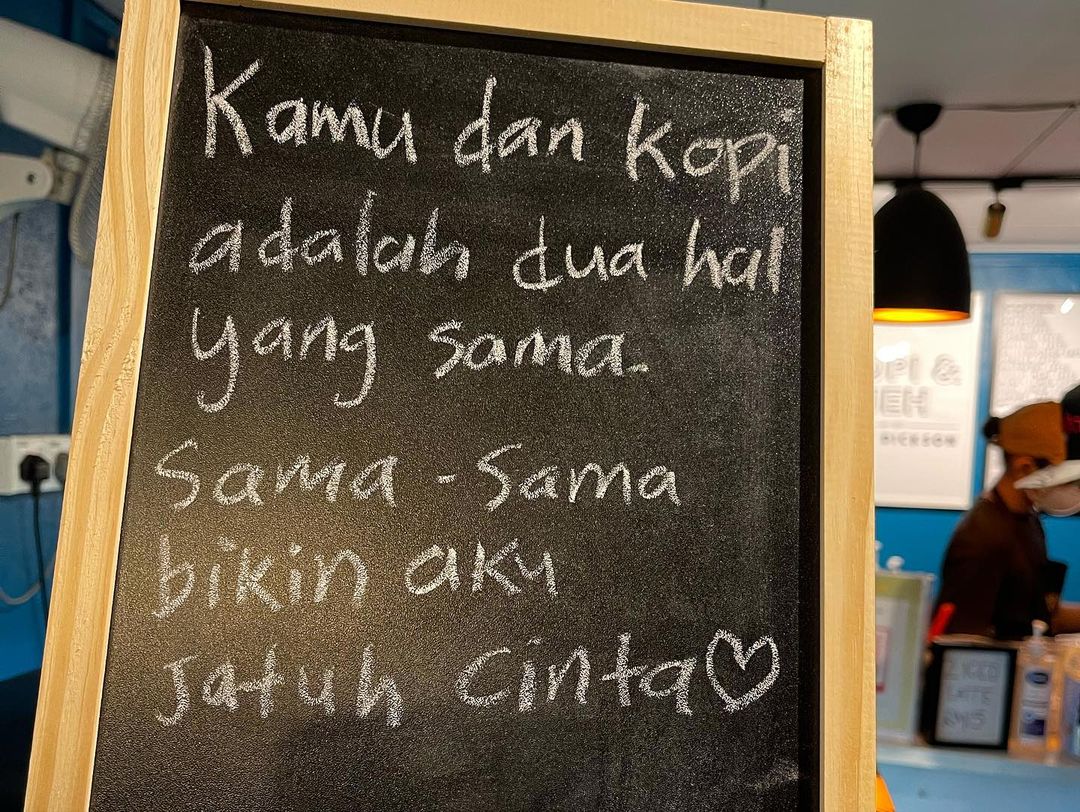 Kamu dan kopi
adalah dua hal
yang sama.
Sama - Sama
bikin aku
Jatuh Cinta♡
OPI &
TEH
DICKSON